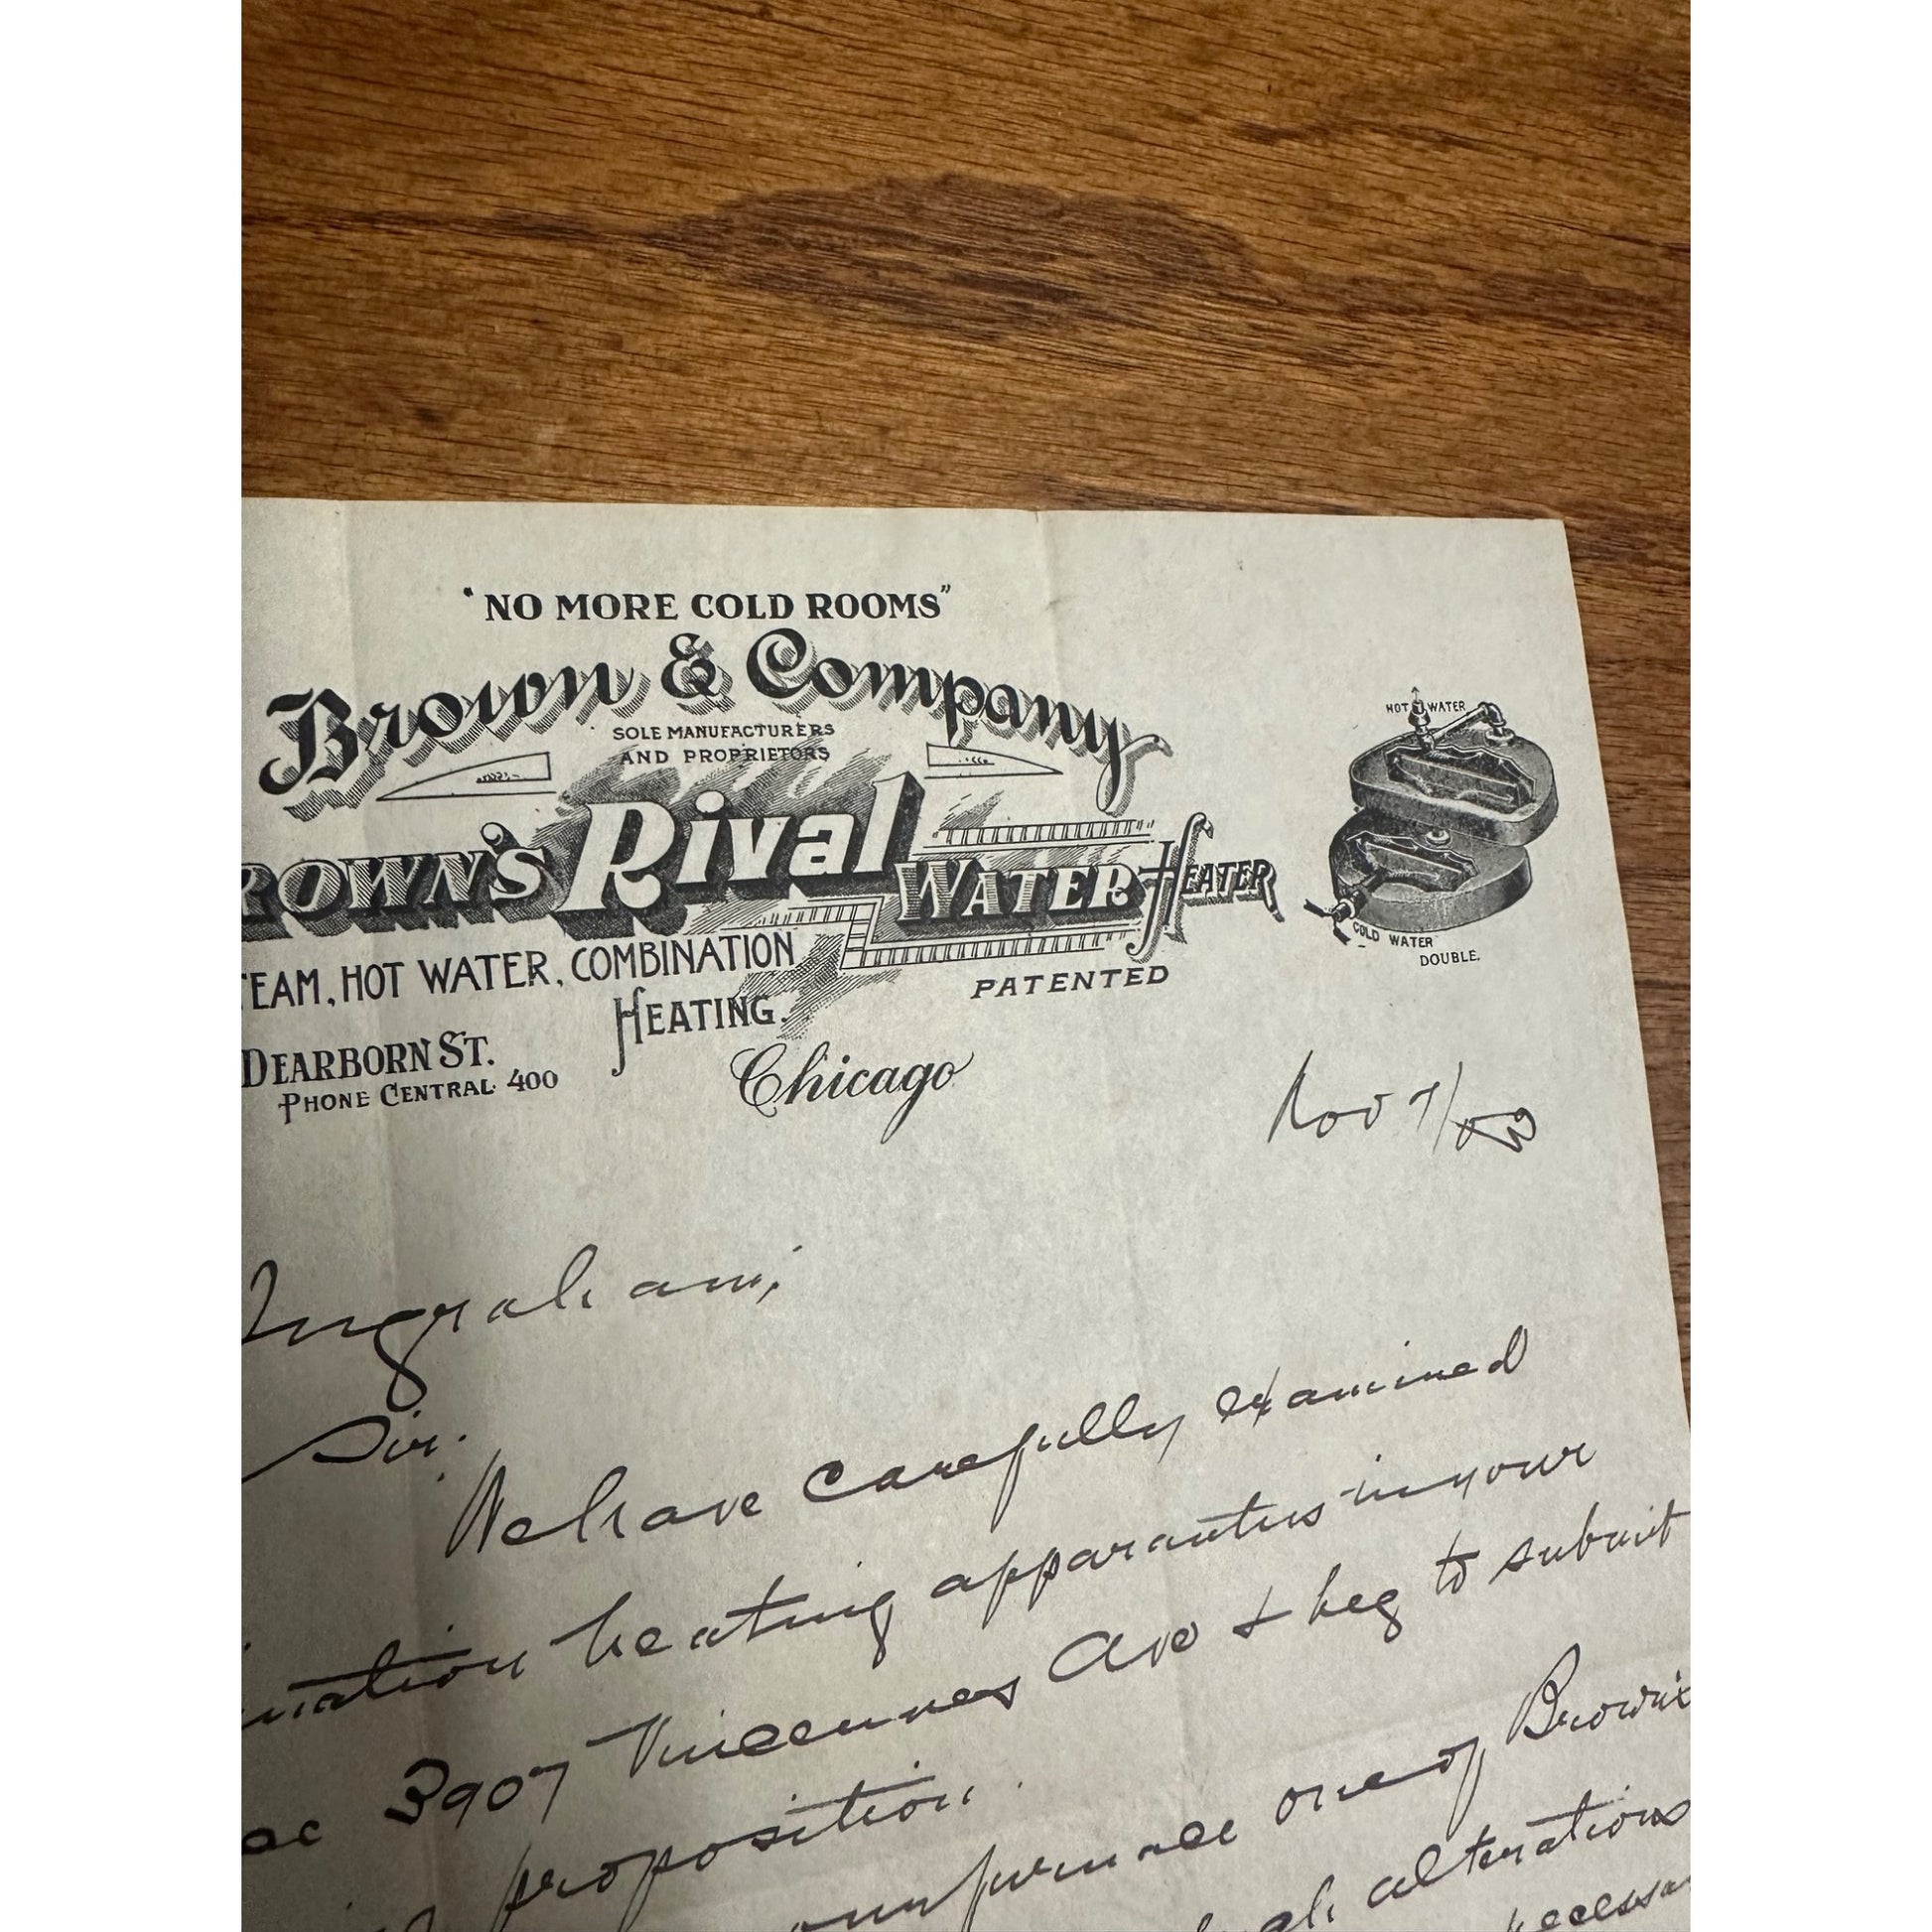 "NO MORE COLD ROOMS"
Brown & Company
SOLE MANUFACTURERS
AND PROPRIETORS
ROWN'S Rival WATER HEATER
HOT WATER
COLD WATER
DOUBLE.
TEAM, HOT WATER, COMBINATION
HEATING.
PATENTED
DEARBORN ST.
PHONE CENTRAL 400
Chicago
Nov 7/03
Ingraham,
Sir:
We have carefully examined
ination heating apparatus in your
3907 Vincennes Ave & beg to submit
proposition.
furnace one of Brown's
alterations
necessa